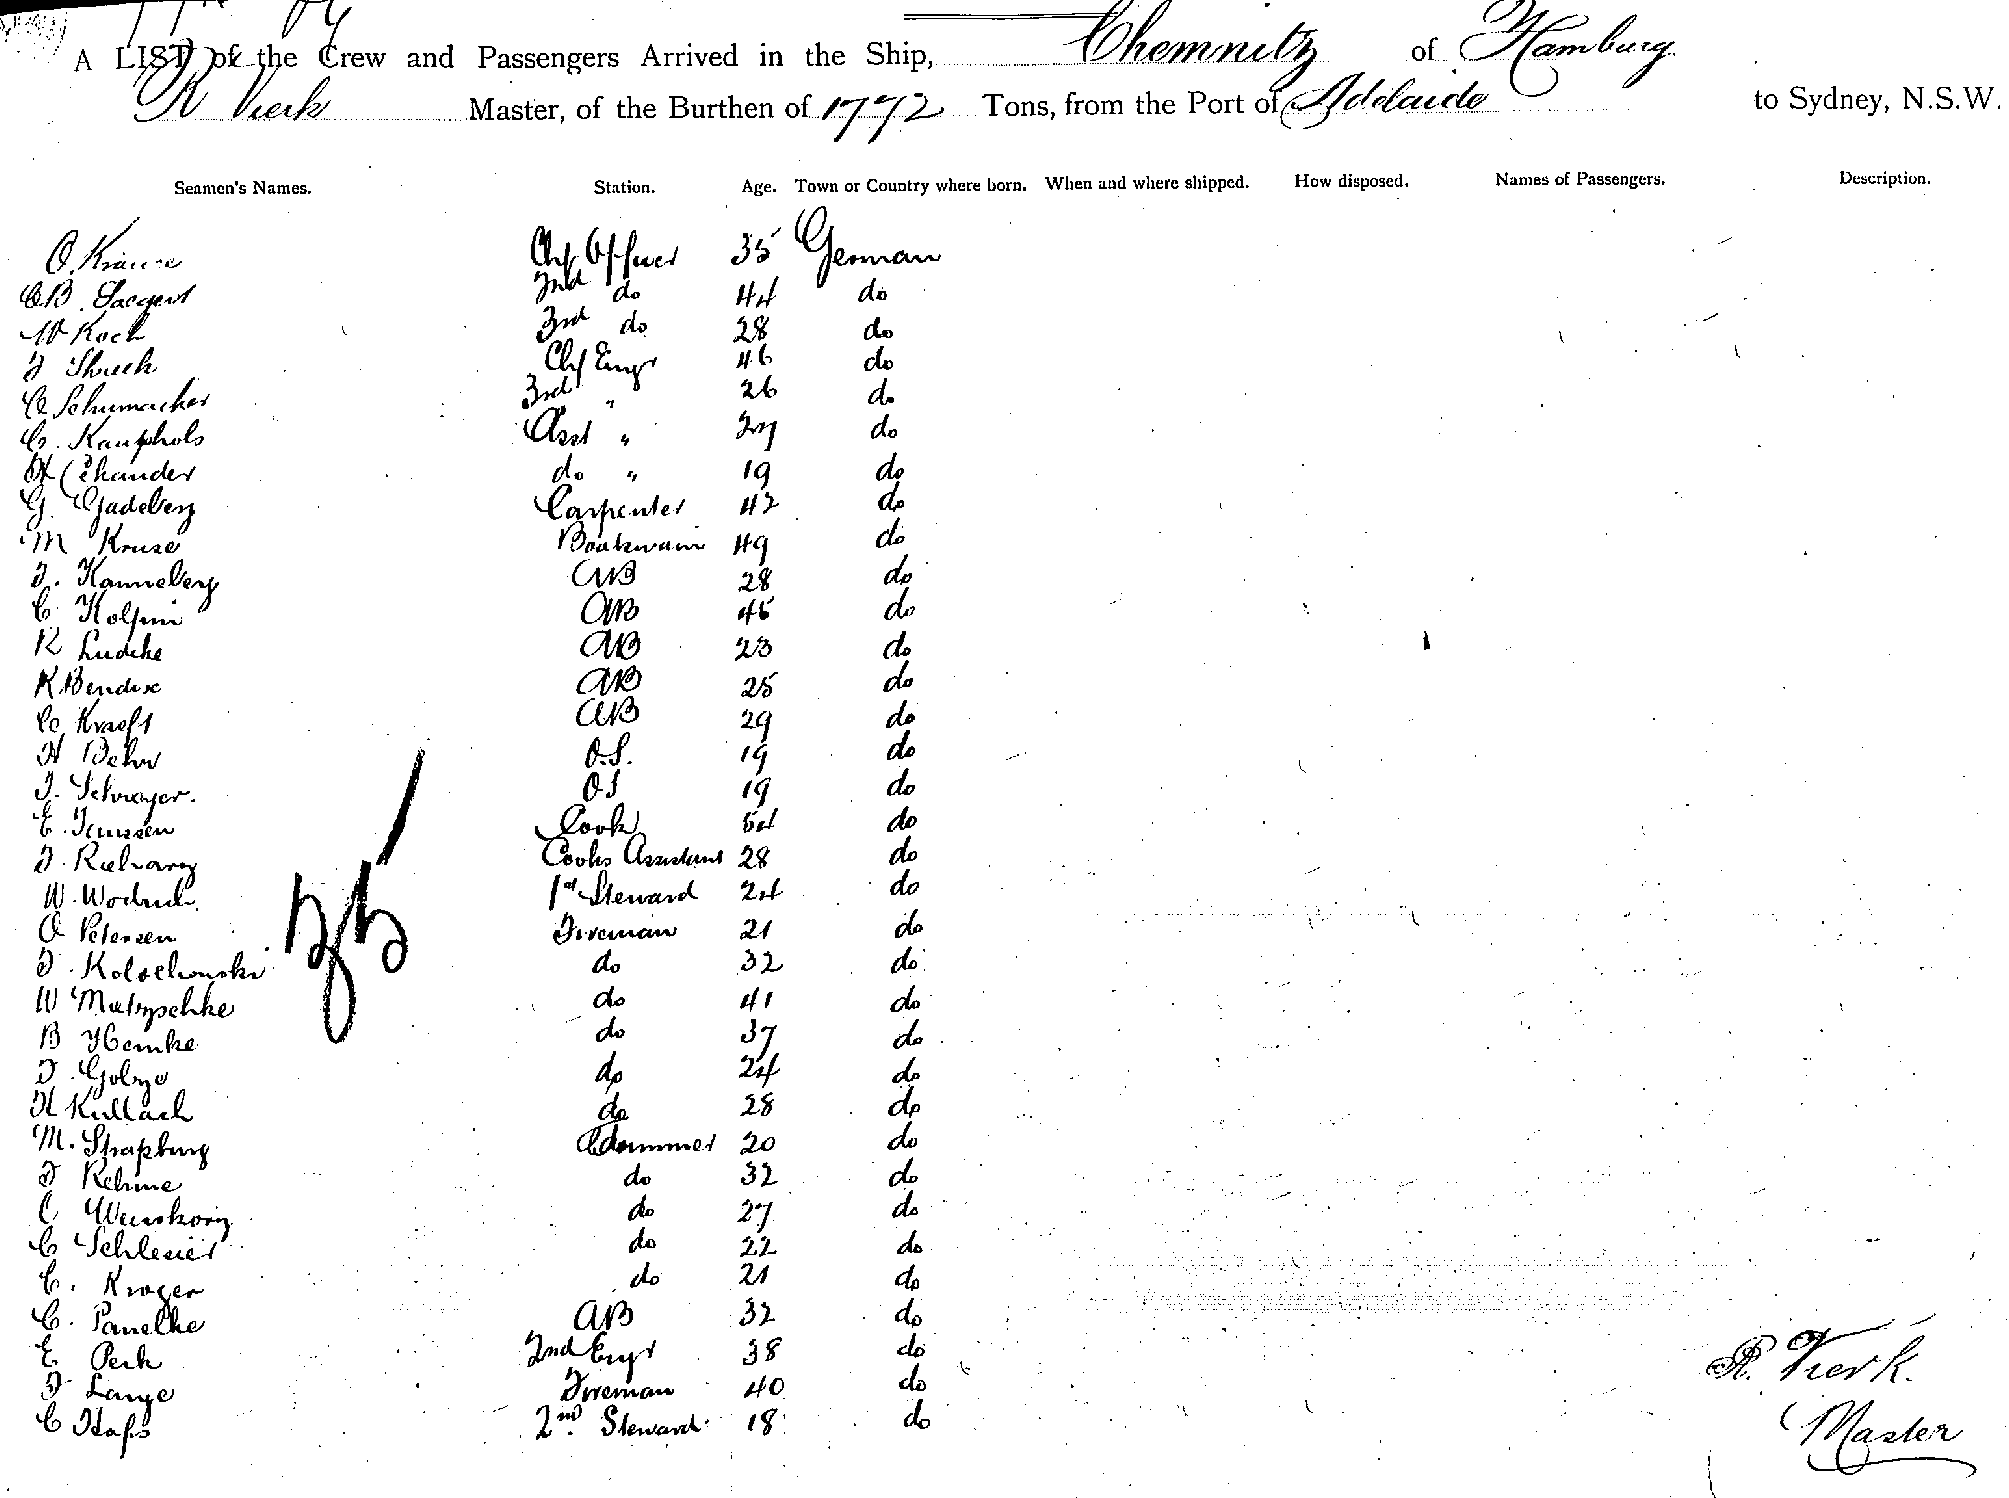 A LIST of the Crew and Passengers Arrived in the Ship, Chemnitz of Hamburg
R Vierk Master, of the Burthen of 1772 Tons, from the Port of Adelaide to Sydney, N.S.W.
Seamen's Names. Station. Age. Town or Country where born. When and where shipped. How disposed. Names of Passengers. Description.
O. Krause Chf Officer 35 German
2nd do 44 do
W Koch 3rd do 28 do
Chf Engr 46 do
C Schumacher 3rd " 26 do
C. Kauphols Asst " 27 do
do " 19 do
G. Gadeberg Carpenter 42 do
M Kruse Boatswain 49 do
F. Kanneberg AB 28 do
C. Holpin AB 45 do
R Ludcke AB 23 do
K Bendix AB 25 do
C Kraeft AB 29 do
H Behr O.S. 19 do
F. Schroyer. OS 19 do
E. Janssen Cook 54 do
F. Cooks Assistant 28 do
W. 1st Steward 24 do
O Petersen Fireman 21 do
F. Kolochowski do 32 do
W Matzschke do 41 do
B Hemke do 37 do
F. Golze do 24 do
H Kullach do 28 do
M. Strapburg 20 do
F Rehme do 32 do
C do 27 do
C Schlesier do 22 do
C. Kroger do 21 do
C. Panelke AB 32 do
E Perk 2nd Engr 38 do
F Lange Fireman 40 do
C Hafs 2nd Steward 18 do
35/
R. Vierk.
Master